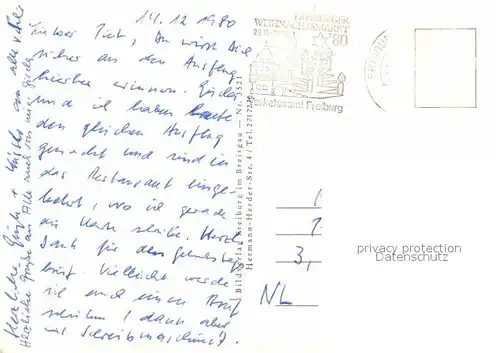 14.12.1980
Lieber Piet, Du wirst Dich
sicher an den Ausflug
hierher erinnern.
und ich haben heute
den gleichen Ausflug
gemacht und sind in
das Restaurant einge-
kehrt, wo ich gerade
die Karte schreibe. Herzl.
Dank für den Geburtstags-
brief. Vielleicht werde
ich auch einen Brief
schreiben (dann aber
mit Schreibmaschine!).
Herzliche Grüße + Küsse an alle
Herzliche Grüße an Alle auch von
FREIBURGER
WEIHNACHTSMARKT
80
Verkehrsamt Freiburg
Bild Verlag Freiburg im Breisgau — Nr. 3521
Hermann-Herder-Str. 4 / Tel.
3,
NL
privacy protection
Datenschutz